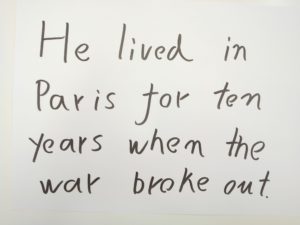 He lived in
Paris for ten
years when the
war broke out.